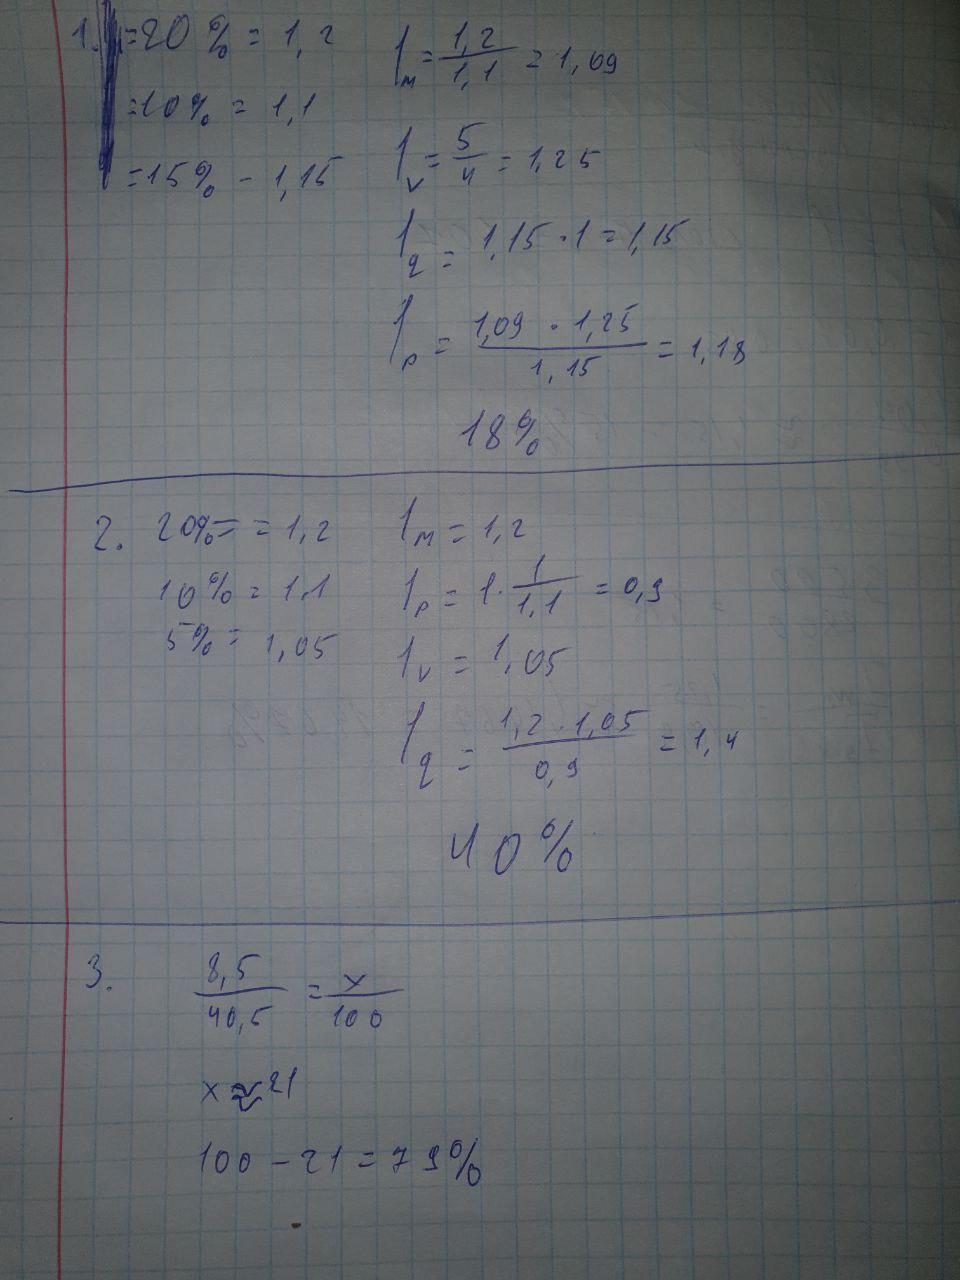 1. =20% = 1,2
=10% = 1,1
=15% - 1,15
I м = 1,2 / 1,1 = 1,09
I v = 5 / 4 = 1,25
I q = 1,15 · 1 = 1,15
I p = 1,09 · 1,25 / 1,15 = 1,18
18%
2. 20%= = 1,2
10% = 1.1
5% = 1,05
I м = 1,2
I p = 1 · 1 / 1,1 = 0,9
I v = 1,05
I q = 1,2 · 1,05 / 0,9 = 1,4
40%
3. 8,5 / 40,5 = x / 100
x ≈ 21
100 - 21 = 79%